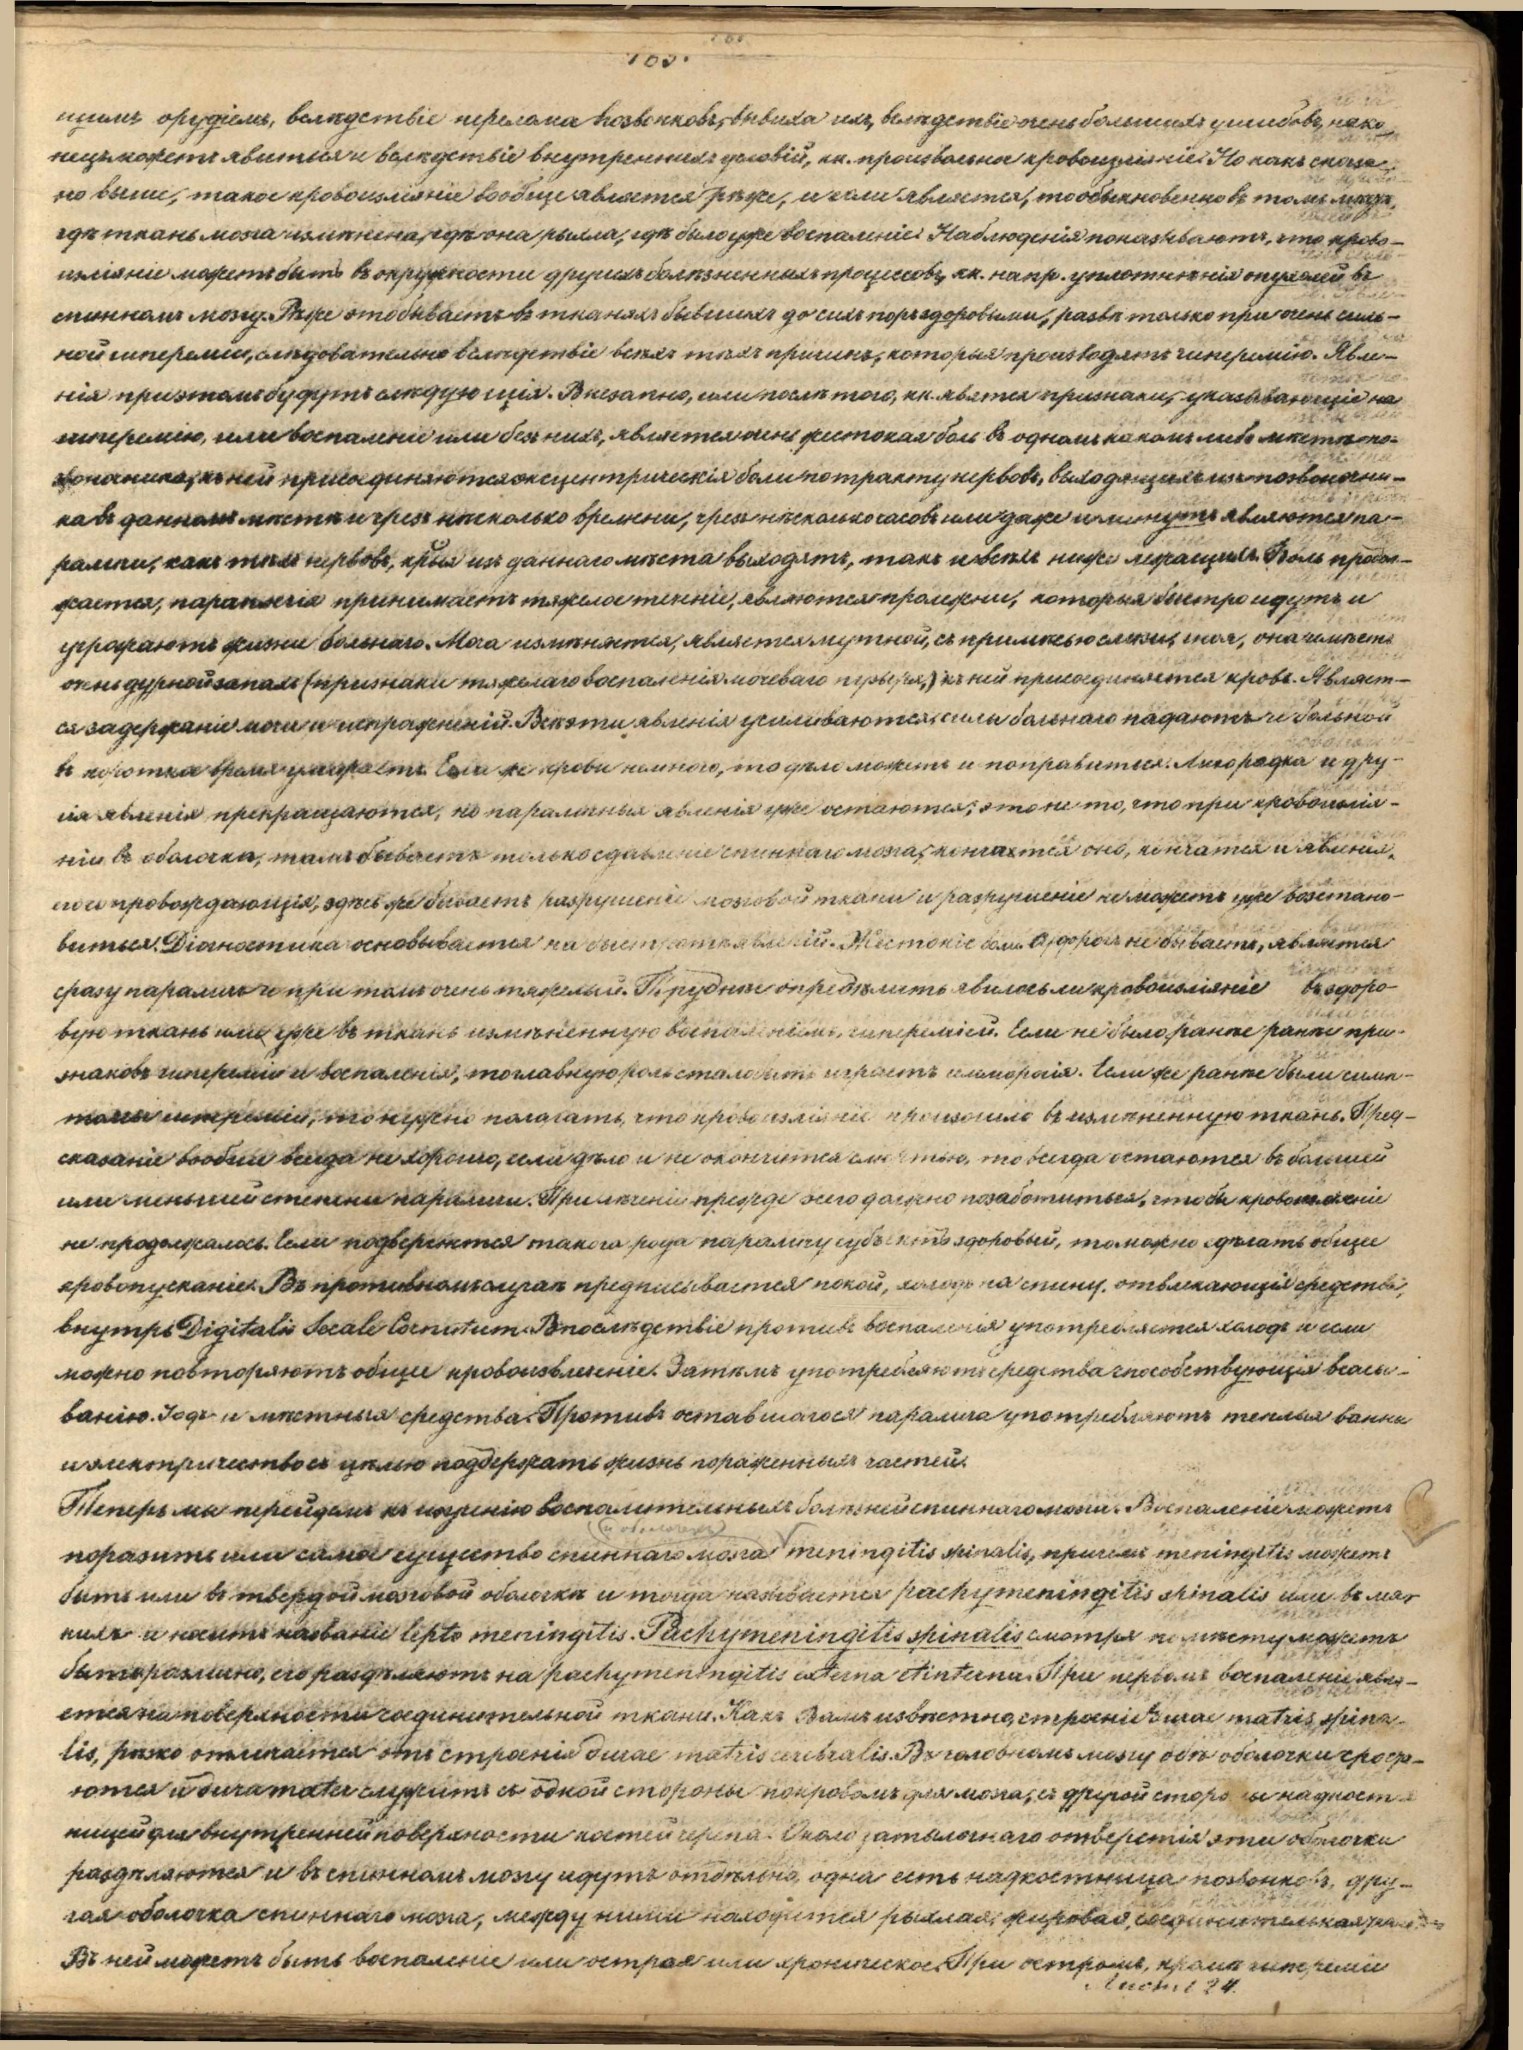 103.
щимъ орудіемъ, вслѣдствіе перелома позвонковъ, вывиха ихъ, вслѣдствіе очень большихъ ушибовъ, нако
нецъ можетъ явиться и вслѣдствіе внутреннихъ условій, кк. произвольное кровоизліяніе. Но какъ сказа-
но выше, такое кровоизліяніе вообще является рѣже, и если является, то обыкновенно въ томъ мѣстѣ,
гдѣ ткань мозга измѣнена, гдѣ она рыхла, гдѣ было уже воспаленіе. Наблюденія показываютъ, что крово-
изліяніе можетъ быть въ окружности другихъ болѣзненныхъ процессовъ, кк. напр. уплотнѣнія опухолей въ
спинномъ мозгу. Рѣже это бываетъ въ тканяхъ бывшихъ до сихъ поръ здоровыми, развѣ только при очень силь-
ной гипереміи, слѣдовательно вслѣдствіе всѣхъ тѣхъ причинъ, которыя производятъ гиперемію. Явле-
нія при этомъ будутъ слѣдующія. Внезапно, или послѣ того, кк. явятся признаки, указывающіе на
гиперемію, или воспаленіе или безъ нихъ, является очень жестокая боль въ одномъ какомъ либо мѣстѣ по-
звоночника, къ ней присоединяются эксцентрическія боли по тракту нервовъ, выходящихъ изъ позвоночни-
ка въ данномъ мѣстѣ и чрезъ нѣсколько времени, чрезъ нѣсколько часовъ или даже и минутъ являются па-
раличи, какъ тѣхъ нервовъ, крыя изъ даннаго мѣста выходятъ, такъ и всѣхъ ниже лежащихъ. Боль продол-
жается, параплегія принимаетъ тяжелое теченіе, являются пролежни, которыя быстро идутъ и
угрожаютъ жизни больнаго. Моча измѣняется, является мутной, съ примѣсью слизи, гноя, она имѣетъ
очень дурной запахъ (признаки тяжелаго воспаленія мочеваго пузыря,) къ ней присоединяется кровь. Являет-
ся задержаніе мочи и испражненій. Всѣ эти явленія усиливаются, силы больнаго падаютъ и больной
въ короткое время умираетъ. Если же крови немного, то дѣло можетъ и поправиться. Лихорадка и дру-
гія явленія прекращаются, но параличныя явленія уже остаются; это не то, что при кровоизлія-
ніи въ оболочки, тамъ бываетъ только сдавленіе спиннаго мозга, кончается оно, кончатся и явленія,
его сопровождающія, здѣсь же бываетъ разрушеніе мозговой ткани и разрушеніе не можетъ уже возстано-
виться. Діагностика основывается на быстротѣ явленій. Жестокіе боли судорогъ не бываетъ, является
сразу параличъ и при томъ очень тяжелый. Труднѣе опредѣлить явилось ли кровоизліяніе въ здоро-
вую ткань или уже въ ткань измѣненную воспаленіемъ, гипереміей. Если не было ранѣе ранѣе при-
знаковъ гипереміи и воспаленія, то главную роль стало быть играетъ гэморрагія. Если же ранѣе были симп-
томы гипереміи, то нужно полагать, что кровоизліяніе произошло въ измѣненную ткань. Пред-
сказаніе вообще всегда не хорошо, если дѣло и не окончится смертью, то всегда остаются въ большей
или меньшей степени параличи. При леченіи прежде всего должно позаботиться, чтобы кровоизліяніе
не продолжалось. Если подвергается такого рода параличу субъектъ здоровый, то можно сдѣлать общее
кровопусканіе. Въ противномъ случаѣ предписывается покой, холодъ на спину, отвлекающія средства,
внутрь Digitalis Secale Cornutum. Впослѣдствіе противъ воспаленія употребляется холодъ и если
можно повторяютъ общее кровоизвлеченіе. Затѣмъ употребляютъ средства способствующія всасы-
ванію. Іодъ и мѣстныя средства. Противъ оставшагося паралича употребляютъ теплыя ванны
и электричество съ цѣлью поддержать жизнь пораженныхъ частей.
Теперь мы перейдемъ къ изученію воспалительныхъ болѣзней спиннаго мозга. Воспаленіе можетъ
(и оболочекъ)
поразить или самое существо спиннаго мозга meningitis spinalis, причемъ meningitis можетъ
быть или въ твердой мозговой оболочкѣ и тогда называется pachymeningitis spinalis или въ мяг
кихъ и носитъ названіе lepto meningitis. Pachymeningitis spinalis смотря по мѣсту можетъ
быть различно, его раздѣляютъ на pachymeningitis externa et interna. При первомъ воспаленіе явля-
ется на поверхности соединительной ткани. Какъ Вамъ извѣстно, строеніе durae matris spina-
lis, рѣзко отличается отъ строенія durae matris cerebralis. Въ головномъ мозгу обѣ оболочки сроста-
ются и dura mater служитъ съ одной стороны покровомъ для мозга, съ другой стороны надкостн
ницей для внутренней поверхности костей черепа. Около затылочнаго отверстія эти оболочки
раздѣляются и въ спинномъ мозгу идутъ отдѣльно, одна есть надкостница позвонковъ, дру-
гая оболочка спиннаго мозга, между ними находится рыхлая, жировая, соединительная ткань.
Въ ней можетъ быть воспаленіе или острая или хроническое. При остромъ, кромѣ гипереміи
Листъ 24.